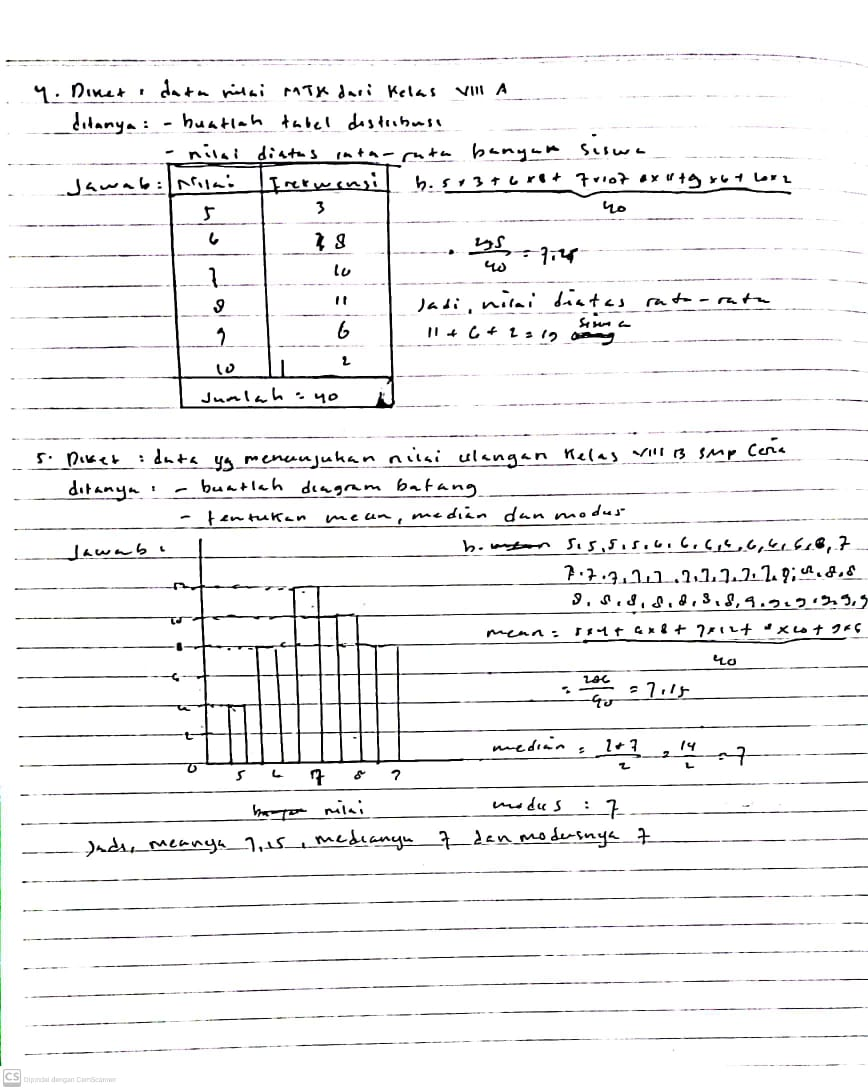 4. Diket : data nilai MTK dari Kelas VIII A
ditanya : - buatlah tabel distribusi
- nilai diatas rata-rata banyak siswa
Jawab : Nilai Frekwensi
5 3
6 8
7 10
8 11
9 6
10 2
Jumlah = 40
b. 5 x 3 + 6 x 8 + 7 x 10 + 8 x 11 + 9 x 6 + 10 x 2
40
= 7,25
40
Jadi, nilai diatas rata-rata
11 + 6 + 2 = 19 siswa
5. Diket : data yg menunjukan nilai ulangan Kelas VIII B SMP Ceria
ditanya : - buatlah diagram batang
- tentukan mean, median dan modus
Jawab :
12
10
8
6
4
2
0
5 6 7 8 9
nilai
b. 5,5,5,5,6,6,6,6,6,6,6,6,7
mean = 5x4 + 6x8 + 7x12 + 8x10 + 9x6
40
= 286
40
= 7,15
median = 7+7
2
= 14
2
= 7
modus : 7
Jadi, meanya 7,15, medianya 7 dan modusnya 7
CS Dipindai dengan CamScanner